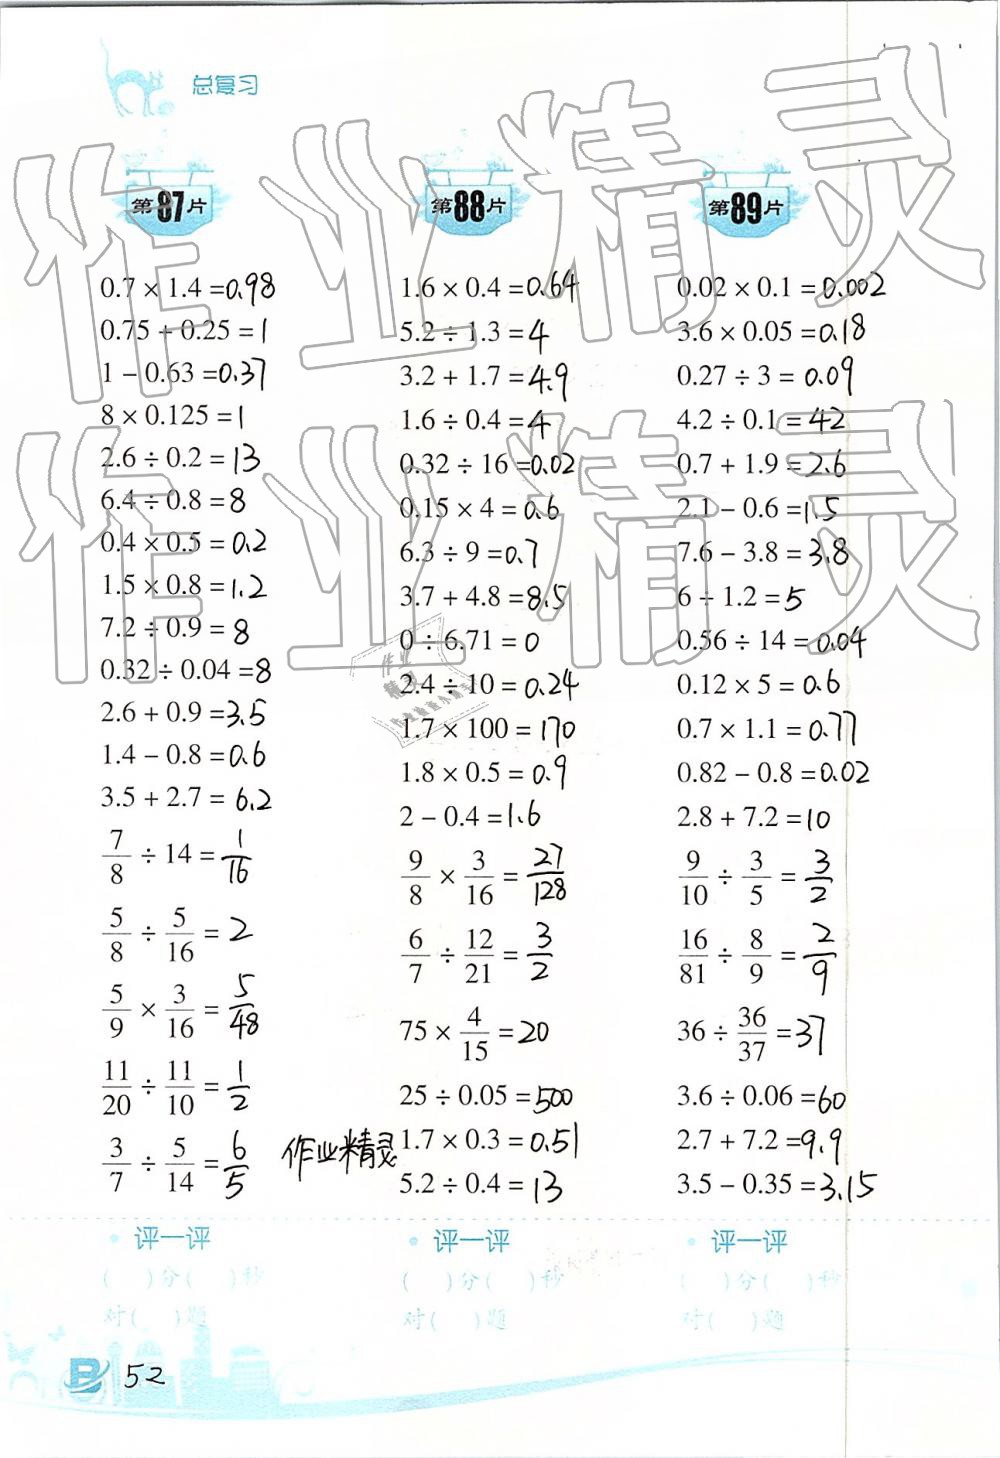 总复习
第87片
0.7 × 1.4 = 0.98
0.75 + 0.25 = 1
1 − 0.63 = 0.37
8 × 0.125 = 1
2.6 ÷ 0.2 = 13
6.4 ÷ 0.8 = 8
0.4 × 0.5 = 0.2
1.5 × 0.8 = 1.2
7.2 ÷ 0.9 = 8
0.32 ÷ 0.04 = 8
2.6 + 0.9 = 3.5
1.4 − 0.8 = 0.6
3.5 + 2.7 = 6.2
7/8 ÷ 14 = 1/16
5/8 ÷ 5/16 = 2
5/9 × 3/16 = 5/48
11/20 ÷ 11/10 = 1/2
3/7 ÷ 5/14 = 6/5
作业精灵
评一评
( )分( )秒
对( )题
第88片
1.6 × 0.4 = 0.64
5.2 ÷ 1.3 = 4
3.2 + 1.7 = 4.9
1.6 ÷ 0.4 = 4
0.32 ÷ 16 = 0.02
0.15 × 4 = 0.6
6.3 ÷ 9 = 0.7
3.7 + 4.8 = 8.5
0 ÷ 6.71 = 0
2.4 ÷ 10 = 0.24
1.7 × 100 = 170
1.8 × 0.5 = 0.9
2 − 0.4 = 1.6
9/8 × 3/16 = 27/128
6/7 ÷ 12/21 = 3/2
75 × 4/15 = 20
25 ÷ 0.05 = 500
1.7 × 0.3 = 0.51
5.2 ÷ 0.4 = 13
评一评
( )分( )秒
对( )题
第89片
0.02 × 0.1 = 0.002
3.6 × 0.05 = 0.18
0.27 ÷ 3 = 0.09
4.2 ÷ 0.1 = 42
0.7 + 1.9 = 2.6
2.1 − 0.6 = 1.5
7.6 − 3.8 = 3.8
6 ÷ 1.2 = 5
0.56 ÷ 14 = 0.04
0.12 × 5 = 0.6
0.7 × 1.1 = 0.77
0.82 − 0.8 = 0.02
2.8 + 7.2 = 10
9/10 ÷ 3/5 = 3/2
16/81 ÷ 8/9 = 2/9
36 ÷ 36/37 = 37
3.6 ÷ 0.06 = 60
2.7 + 7.2 = 9.9
3.5 − 0.35 = 3.15
评一评
( )分( )秒
对( )题
B 52
作业精灵
作业精灵